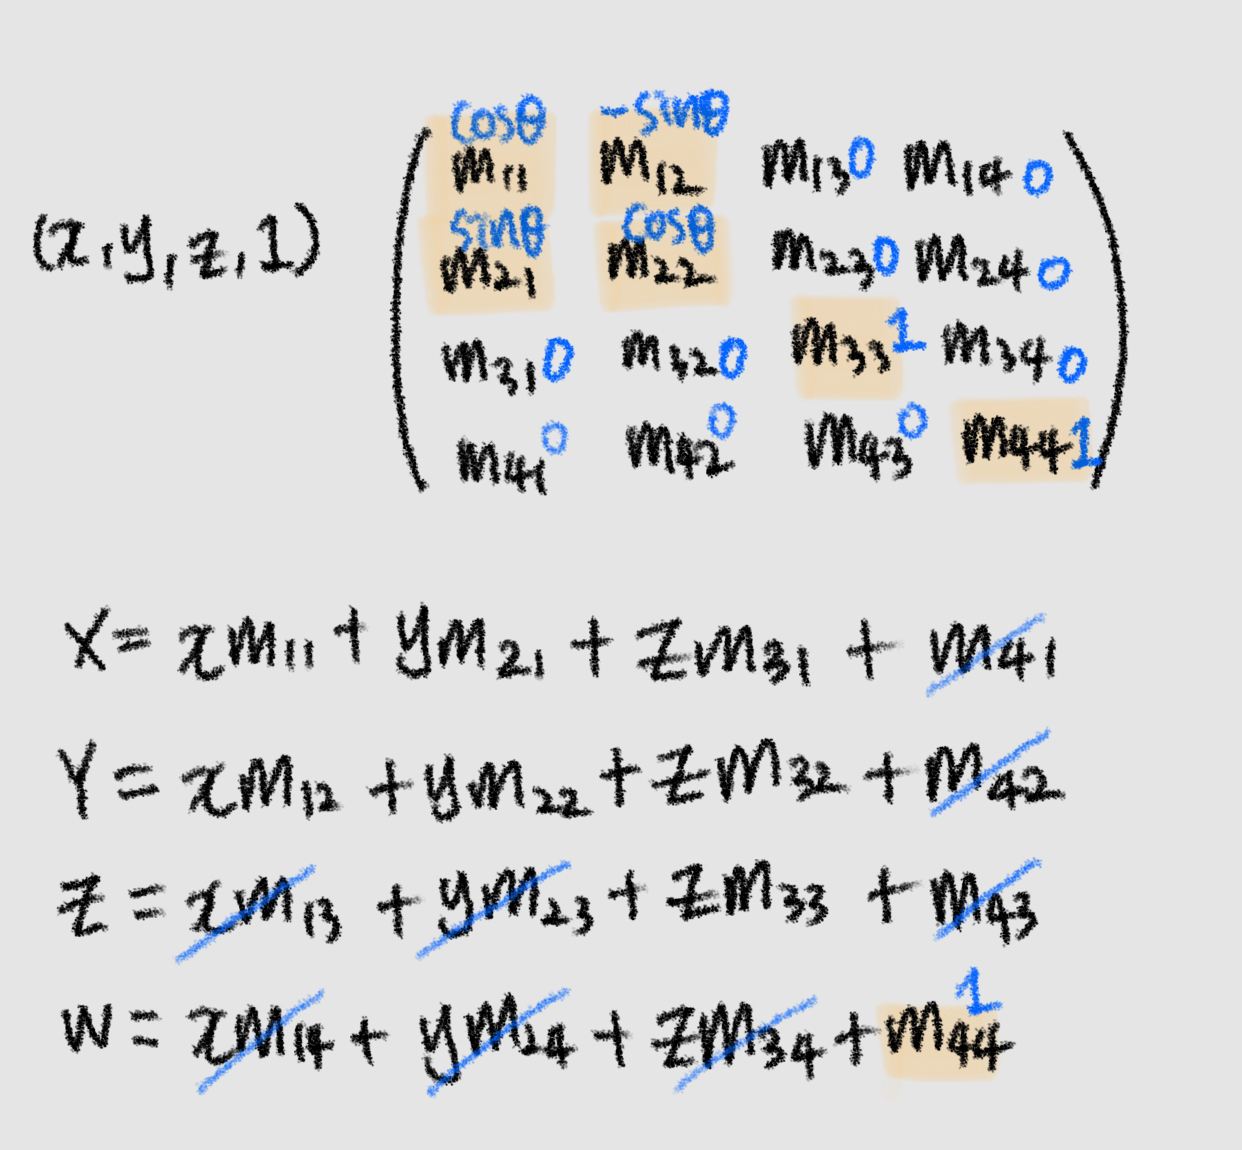 cosθ -sinθ
m₁₁ m₁₂ m₁₃ 0 m₁₄ 0
sinθ cosθ
(x, y, z, 1) m₂₁ m₂₂ m₂₃ 0 m₂₄ 0
m₃₁ 0 m₃₂ 0 m₃₃ 1 m₃₄ 0
m₄₁ 0 m₄₂ 0 m₄₃ 0 m₄₄ 1
X = xm₁₁ + ym₂₁ + zm₃₁ + m₄₁
Y = xm₁₂ + ym₂₂ + zm₃₂ + m₄₂
Z = xm₁₃ + ym₂₃ + zm₃₃ + m₄₃
W = xm₁₄ + ym₂₄ + zm₃₄ + m₄₄ 1